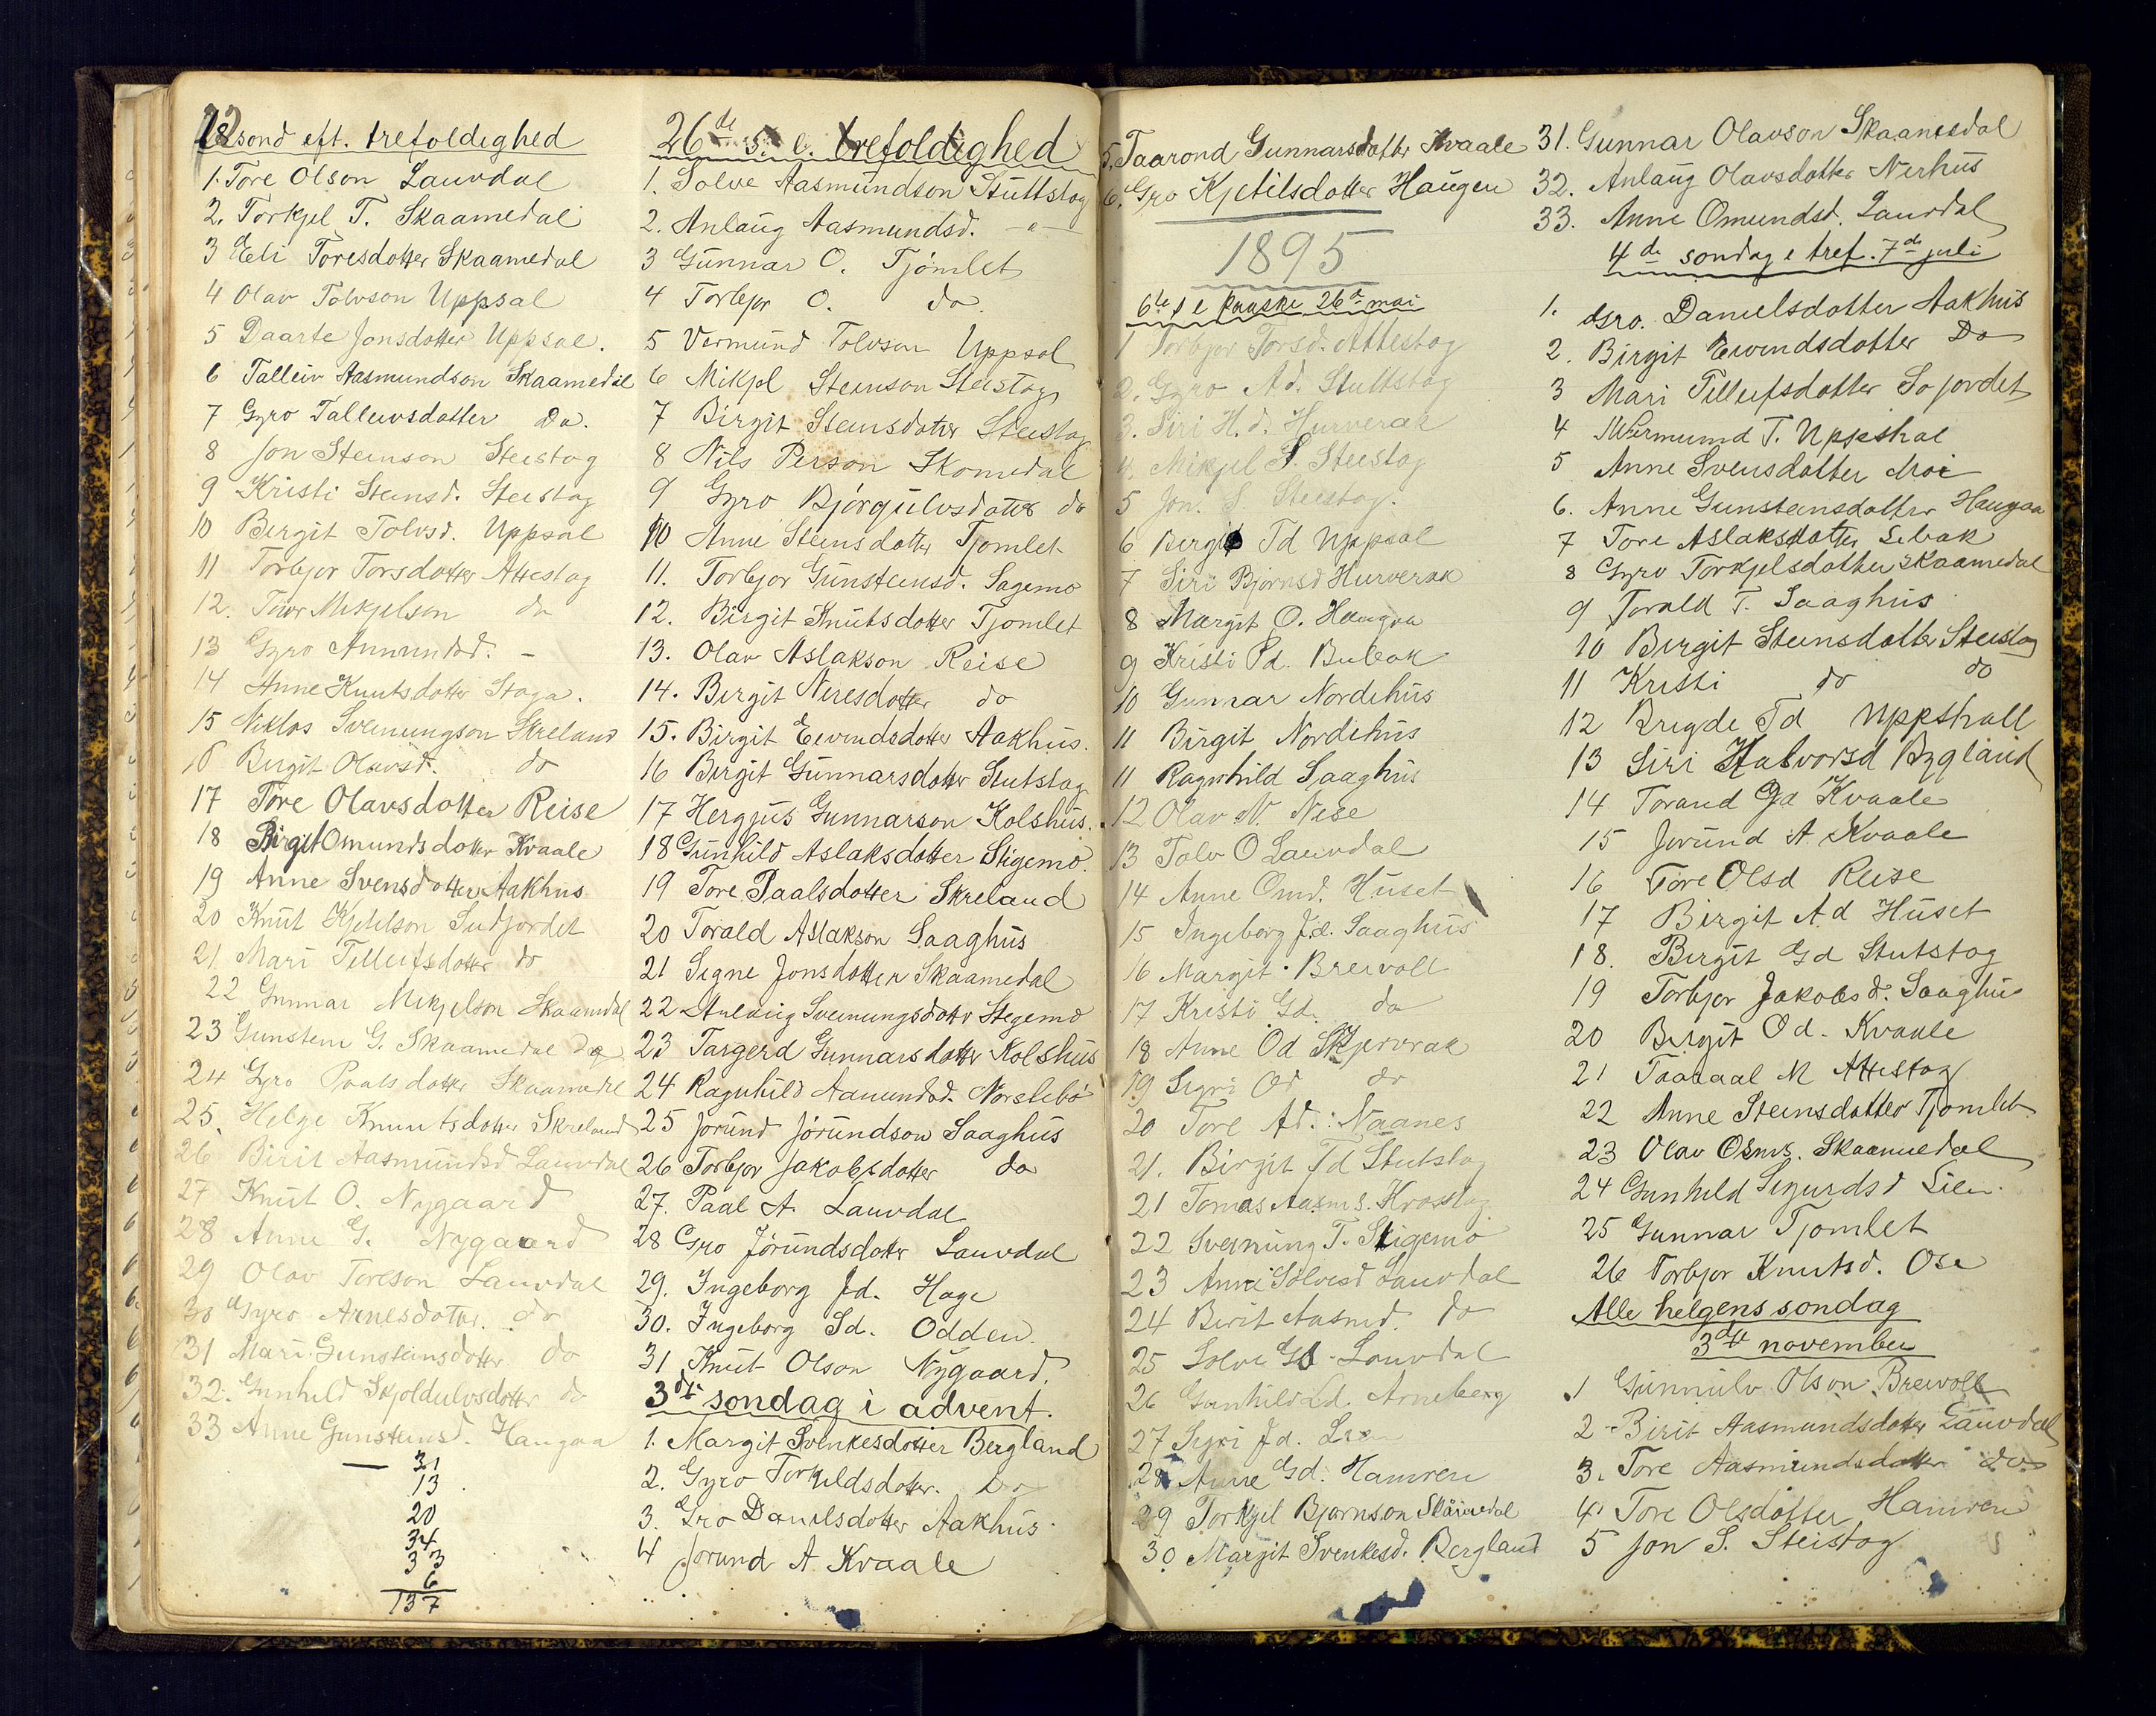 18 sond eft. trefoldighed
1. Tore Olson Lauvdal
2. Torkjel T. Skaamedal
3 Eeli Toresdotter Skaamedal
4 Olav Tolvson Uppsal
5 Daarte Jonsdotter Uppsal.
6 Talleiv Aasmundson Skaamedal
7 Gyro Talleivsdatter Do.
8 Jon Steinson Steistog
9 Kristi Steinsd. Steistog
10 Birgit Tolvsd. Uppsal
11 Torbjor Torsdotter Attestog
12. Taor Mikjelson do
13 Gyro Anmundsd. -
14 Anne Knutsdotter Stoga.
15 Niklos Sveinungson Skreland
16 Birgit Olavsd. do
17 Tore Olavsdotter Reise
18 Birgit Omundsdotter Kvaale
19 Anne Svensdotter Aakhus
20 Knut Kjetilson Sudjordet
21 Mari Tellefsdotter do
22 Gunnar Mikjelson Skaamedal
23 Gunstein G. Skaamedal
24 Gyro Paalsdotter Skaamedal
25. Helge Knuutsdotter Skreland
26 Birit Aasmundsd Lauvdal
27 Knut O. Nygaard
28 Anne G. Nygaard
29 Olav Toreson Lauvdal
30 Gyro Arnesdotter. do
31 Mari Gunsteinsdotter do
32. Gunhild Skjoldulvsdotter do
33 Anne Gunsteinsd. Haugaa
— 31
13
20
34
33
6
137
26de s. e. trefoldighed
1. Solve Aasmundson Stuttstog
2. Anlaug Aasmundsd. —"—
3 Gunnar O. Tjomlet
4 Torbjor O. do.
5 Vermund Tolvson Uppsal
6 Mikjel Steinson Steistog
7 Birgit Steinsdotter Steistog
8 Nils Person Skomedal
9 Gyro Bjørgulvsdotter do
10 Anne Steinsdotter Tjomlet
11. Torbjor Gunsteinsd. Sagemo
12. Birgit Knutsdotter Tjomlet
13. Olav Aslakson Reise
14. Birgit Neresdotter do
15. Birgit Eivindsdotter Aakhus.
16 Birgit Gunnarsdotter Stutstog
17 Hergjus Gunnarson Kolshus.
18 Gunhild Aslaksdotter Stigemo.
19 Tore Paalsdotter Skreland
20 Torald Aslakson Saaghus
21 Signe Jonsdotter Skaamedal
22 Anlaug Sveinungsdotter Stegemo
23 Targerd Gunnarsdotter Kolshus
24 Ragnhild Aanundsd. Norstebø
25 Jorund Jorundson Saaghus
26 Torbjor Jakobsdotter do
27. Paal A. Lauvdal
28 Gro Jorundsdotter Lauvdal
29. Ingeborg Jd. Hage
30. Ingeborg Sd. Odden
31 Knut Olson Nygaard.
3die sondag i advent.
1. Margit Svenkesdotter Bergland
2. Gyro Torkildsdotter. Do
3. Gro Danelsdotter Aakhus
4 Jorund A Kvaale
5. Taarond Gunnarsdotter Kvaale
6. Gro Kjetilsdotter Haugen
1895
6te s e paaske 26de mai
1 Torbjor Torsd. Attestog
2. Gyro Ad. Stuttstog
3. Siri H.d. Hurverak
4. Mikjel S. Steistog
5 Jon. S. Steistog.
6 Birgit Td Uppsal
7 Siri Bjornsd Hurverak
8 Margit O. Haugaa
9 Kristi Pd. Bubak
10 Gunnar Nordehus
11 Birgit Nordehus
11 Ragnhild Saaghus
12 Olav N. Nese
13 Tolv O Lauvdal
14 Anne Omd. Huset
15 Ingeborg Jd. Saaghus
16 Margit Breivoll
17 Kristi Gd. do
18 Anne Od Skjervrak
19 Sigri Od do
20 Tore Ad. Naanes
21. Birgit Td Stutstog
21 Tomas Aasms. Krosstog
22 Sveinung T. Stigemo
23 Anne Solvesd Lauvdal
24 Birit Aasmd. do
25 Solve Gs. Lauvdal
26 Gunhild Ed. Arneberg
27 Sigri Jd.
28 Anne Gd. Hamren
29 Torkjel Bjornson Skåmedal
30 Margit Svenkesd. Bergland
31. Gunnar Olavson Skaamedal
32. Anlaug Olavsdotter Nerhus
33. Anne Omundsd. Lauvdal
4de sondag e tref. 7de juli
1. Gro. Danielsdotter Aakhus
2. Birgit Eivindsdotter Do
3 Mari Tellefsdotter Sojordet
4 Wermund T. Uppshal
5 Anne Svensdotter Moi
6. Anne Gunsteinsdotter Haugaa
7 Tore Aslaksdotter Libak
8 Gyro Torkjelsdotter Skaamedal
9 Torald T. Saaghus
10 Birgit Steinsdotter Steistog
11 Kristi do do
12 Brigde Td Uppshall
13 Siri Halvorsd Bygland
14 Torand Gd Kvaale
15 Jorund A. Kvaale
16 Tore Olsd Reise
17 Birgit Ad Huset
18. Birgit Gd Stutstog
19 Torbjor Jakobsd. Saaghus
20 Birgit Od. Kvaale
21 Taaraal M Attestog
22 Anne Steinsdotter Tjomlet
23 Olav Osms. Skaamedal
24 Gunhild Sigurdsd Lien.
25 Gunnar Tjomlet
26 Torbjor Knutsd. Ose
Alle helgens sondag
3die november
1 Gunnulv Olson Breivoll
2 - Birit Aasmundsdotter Lauvdal
3. Tore Aasmundsdotter do
4 Tore Olsdotter Hamren
5 Jon S. Steistog